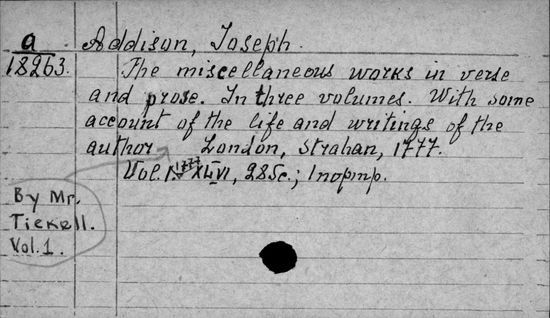 a
18263.
Addison, Joseph.
The miscellaneous works in verse
and prose. In three volumes. With some
account of the life and writings of the
author London, Strahan, 1777.
Vol. I. 1777. XLVI, 285c.;
By Mr.
Tickell.
Vol. 1.